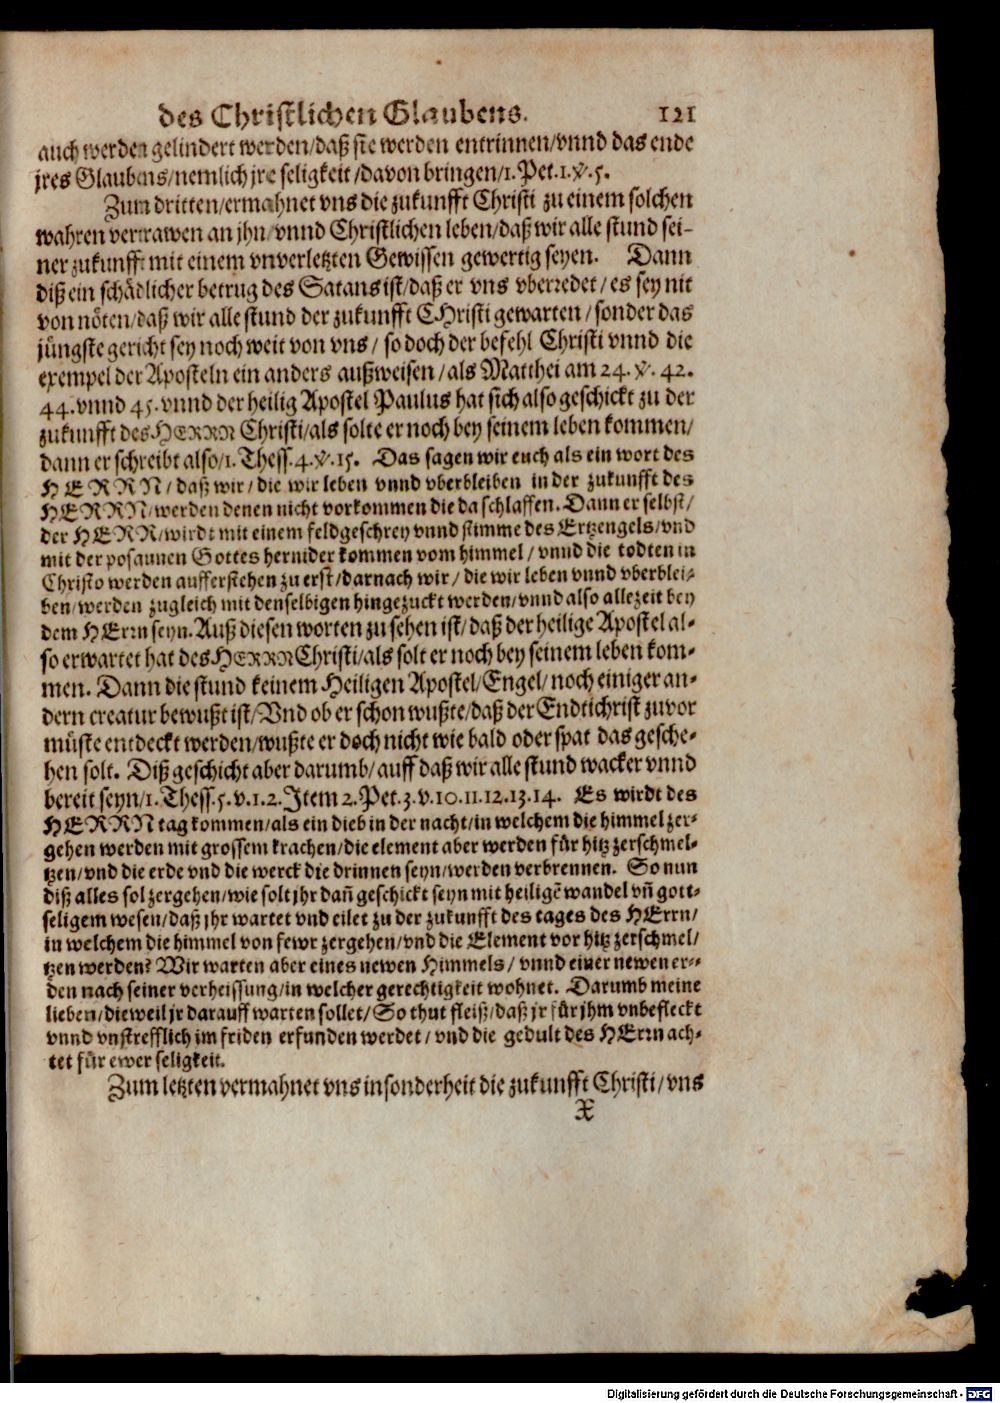 des Christlichen Glaubens. 121
auch werden gelindert werden/daß sie werden entrinnen/vnnd das ende
jres Glaubens/nemlich jre seligkeit/davon bringen/1.Pet.1.v.5.
Zum dritten/ermahnet vns die zukunfft Christi zu einem solchen
wahren vertrawen an jhn/vnnd Christlichen leben/daß wir alle stund sei-
ner zukunfft mit einem vnverletzten Gewissen gewertig seyen. Dann
diß ein schädlicher betrug des Satans ist/daß er vns vberredet/es sey nit
von nöten/daß wir alle stund der zukunfft CHristi gewarten/sonder das
jüngste gericht sey noch weit von vns/so doch der befehl Christi vnnd die
exempel der Aposteln ein anders außweisen/als Matthei am 24.v.42.
44.vnnd 45.vnnd der heilig Apostel Paulus hat sich also geschickt zu der
zukunfft des HERRN Christi/als solte er noch bey seinem leben kommen/
dann er schreibt also/1.Thess.4.v.15. Das sagen wir euch als ein wort des
HERRN/daß wir/die wir leben vnnd vberbleiben in der zukunfft des
HERRN/werden denen nicht vorkommen die da schlaffen. Dann er selbst/
der HERR/wirdt mit einem feldgeschrey vnnd stimme des Ertzengels/vnd
mit der posaunen Gottes hernider kommen vom himmel/vnnd die todten in
Christo werden aufferstehen zu erst/darnach wir/die wir leben vnnd vberblei-
ben/werden zugleich mit denselbigen hingezuckt werden/vnnd also allezeit bey
dem HErrn seyn. Auß diesen worten zu sehen ist/daß der heilige Apostel al-
so erwartet hat des HERRN Christi/als solt er noch bey seinem leben kom-
men. Dann die stund keinem Heiligen Apostel/Engel/noch einiger an-
dern creatur bewußt ist/Vnd ob er schon wußte/daß der Endtichrist zuvor
müste entdeckt werden/wußte er doch nicht wie bald oder spat das gesche-
hen solt. Diß geschicht aber darumb/auff daß wir alle stund wacker vnnd
bereit seyn/1.Thess.5.v.1.2.Item 2.Pet.3.v.10.11.12.13.14. Es wirdt des
HERRN tag kommen/als ein dieb in der nacht/in welchem die himmel zer-
gehen werden mit grossem krachen/die element aber werden für hitz zerschmel-
tzen/vnd die erde vnd die werck die drinnen seyn/werden verbrennen. So nun
diß alles sol zergehen/wie solt jhr dañ geschickt seyn mit heiligẽ wandel vñ gott-
seligem wesen/daß jhr wartet vnd eilet zu der zukunfft des tages des HErrn/
in welchem die himmel von fewr zergehen/vnd die Element vor hitz zerschmel/
tzen werden? Wir warten aber eines newen Himmels/vnnd einer newen er-
den nach seiner verheissung/in welcher gerechtigkeit wohnet. Darumb meine
lieben/dieweil jr darauff warten sollet/So thut fleiß/daß jr für jhm vnbefleckt
vnnd vnstrefflich im friden erfunden werdet/vnd die gedult des HErrn ach-
tet für ewer seligkeit.
Zum letzten vermahnet vns insonderheit die zukunfft Christi/vns
X
Digitalisierung gefördert durch die Deutsche Forschungsgemeinschaft - DFG